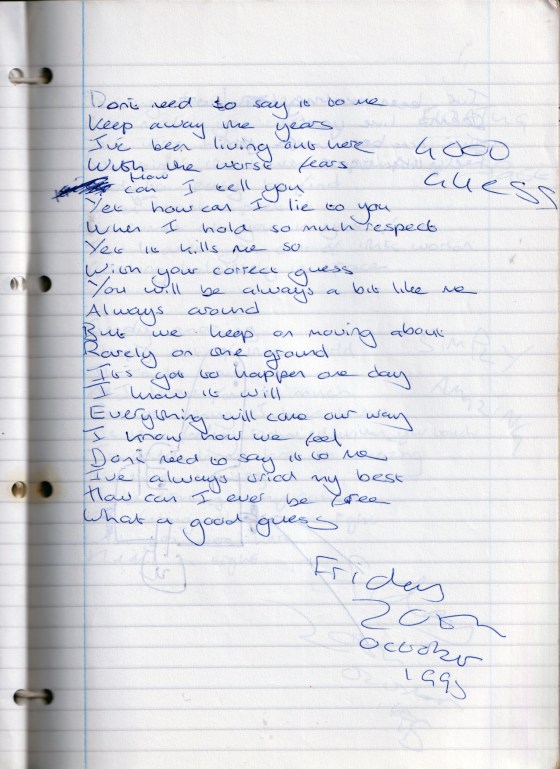 Don't need to say it to me
Keep away the years
I've been living out here
With the worst fears
GOOD
GUESS
How
can I tell you
Yet how can I lie to you
When I hold so much respect
Yet it kills me so
With your correct guess
You will be always a bit like me
Always around
But we keep on moving about
Rarely on the ground
It's got to happen one day
I know it will
Everything will come our way
I know how we feel
Don't need to say it to me
I've always tried my best
How can I ever be free
What a good guess
Friday
20th
October
1995